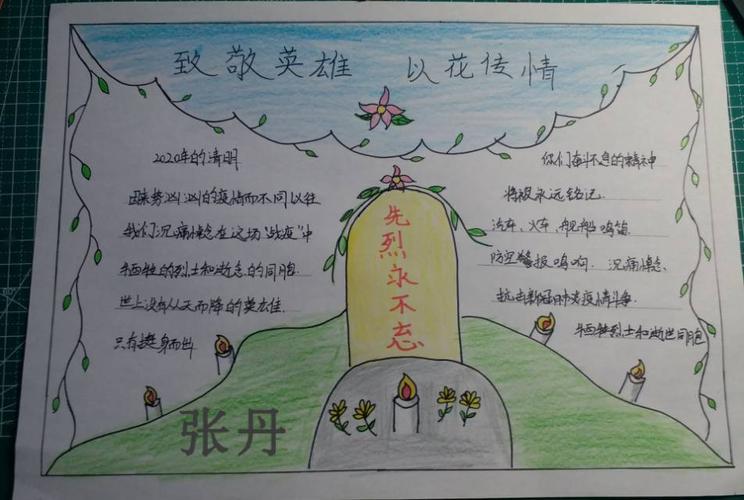 致敬英雄 以花传情
2020年的清明
因来势汹汹的疫情而不同以往
我们沉痛悼念在这场"战疫"中
牺牲的烈士和逝世的同胞
世上没有从天而降的英雄
只有挺身而出
先烈永不忘
你们奋斗不息的精神
将被永远铭记
汽车、火车、舰船鸣笛
防空警报鸣响 沉痛悼念
抗击新冠肺炎疫情斗争
牺牲烈士和逝世同胞
张丹